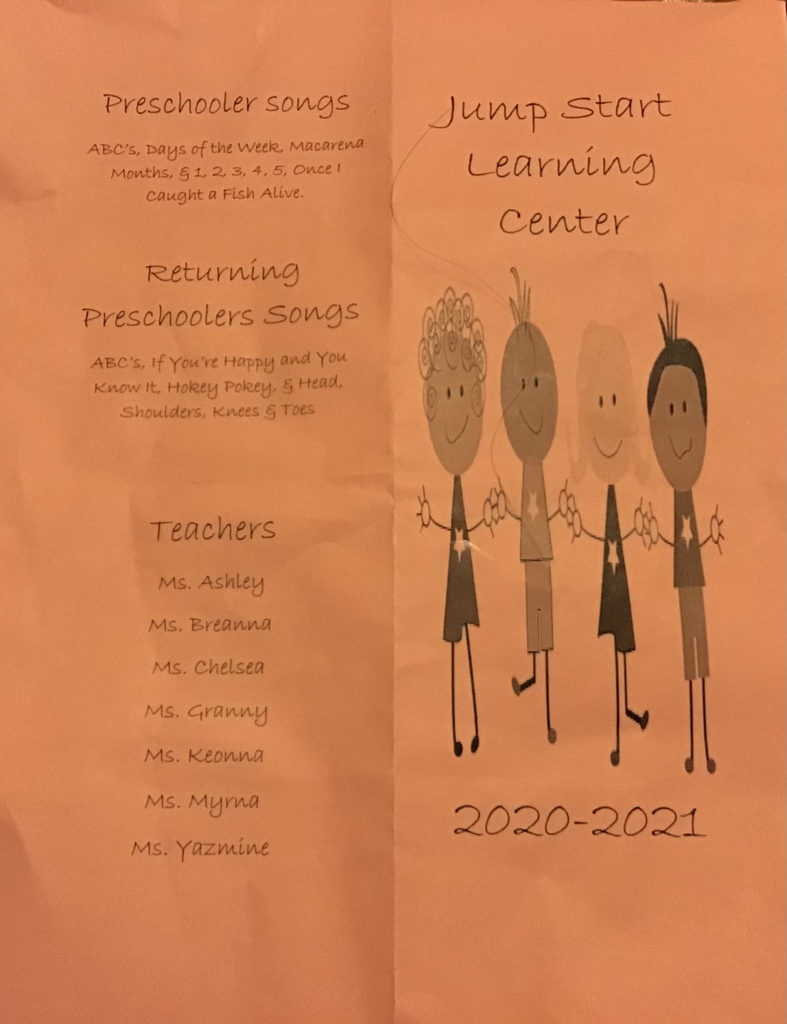 Preschooler songs
ABC's, Days of the Week, Macarena
Months, & 1, 2, 3, 4, 5, Once I
Caught a Fish Alive.
Returning
Preschoolers Songs
ABC's, If You're Happy and You
Know It, Hokey Pokey, & Head,
Shoulders, Knees & Toes
Teachers
Ms. Ashley
Ms. Breanna
Ms. Chelsea
Ms. Granny
Ms. Keonna
Ms. Myrna
Ms. Yazmine
Jump Start
Learning
Center
2020-2021